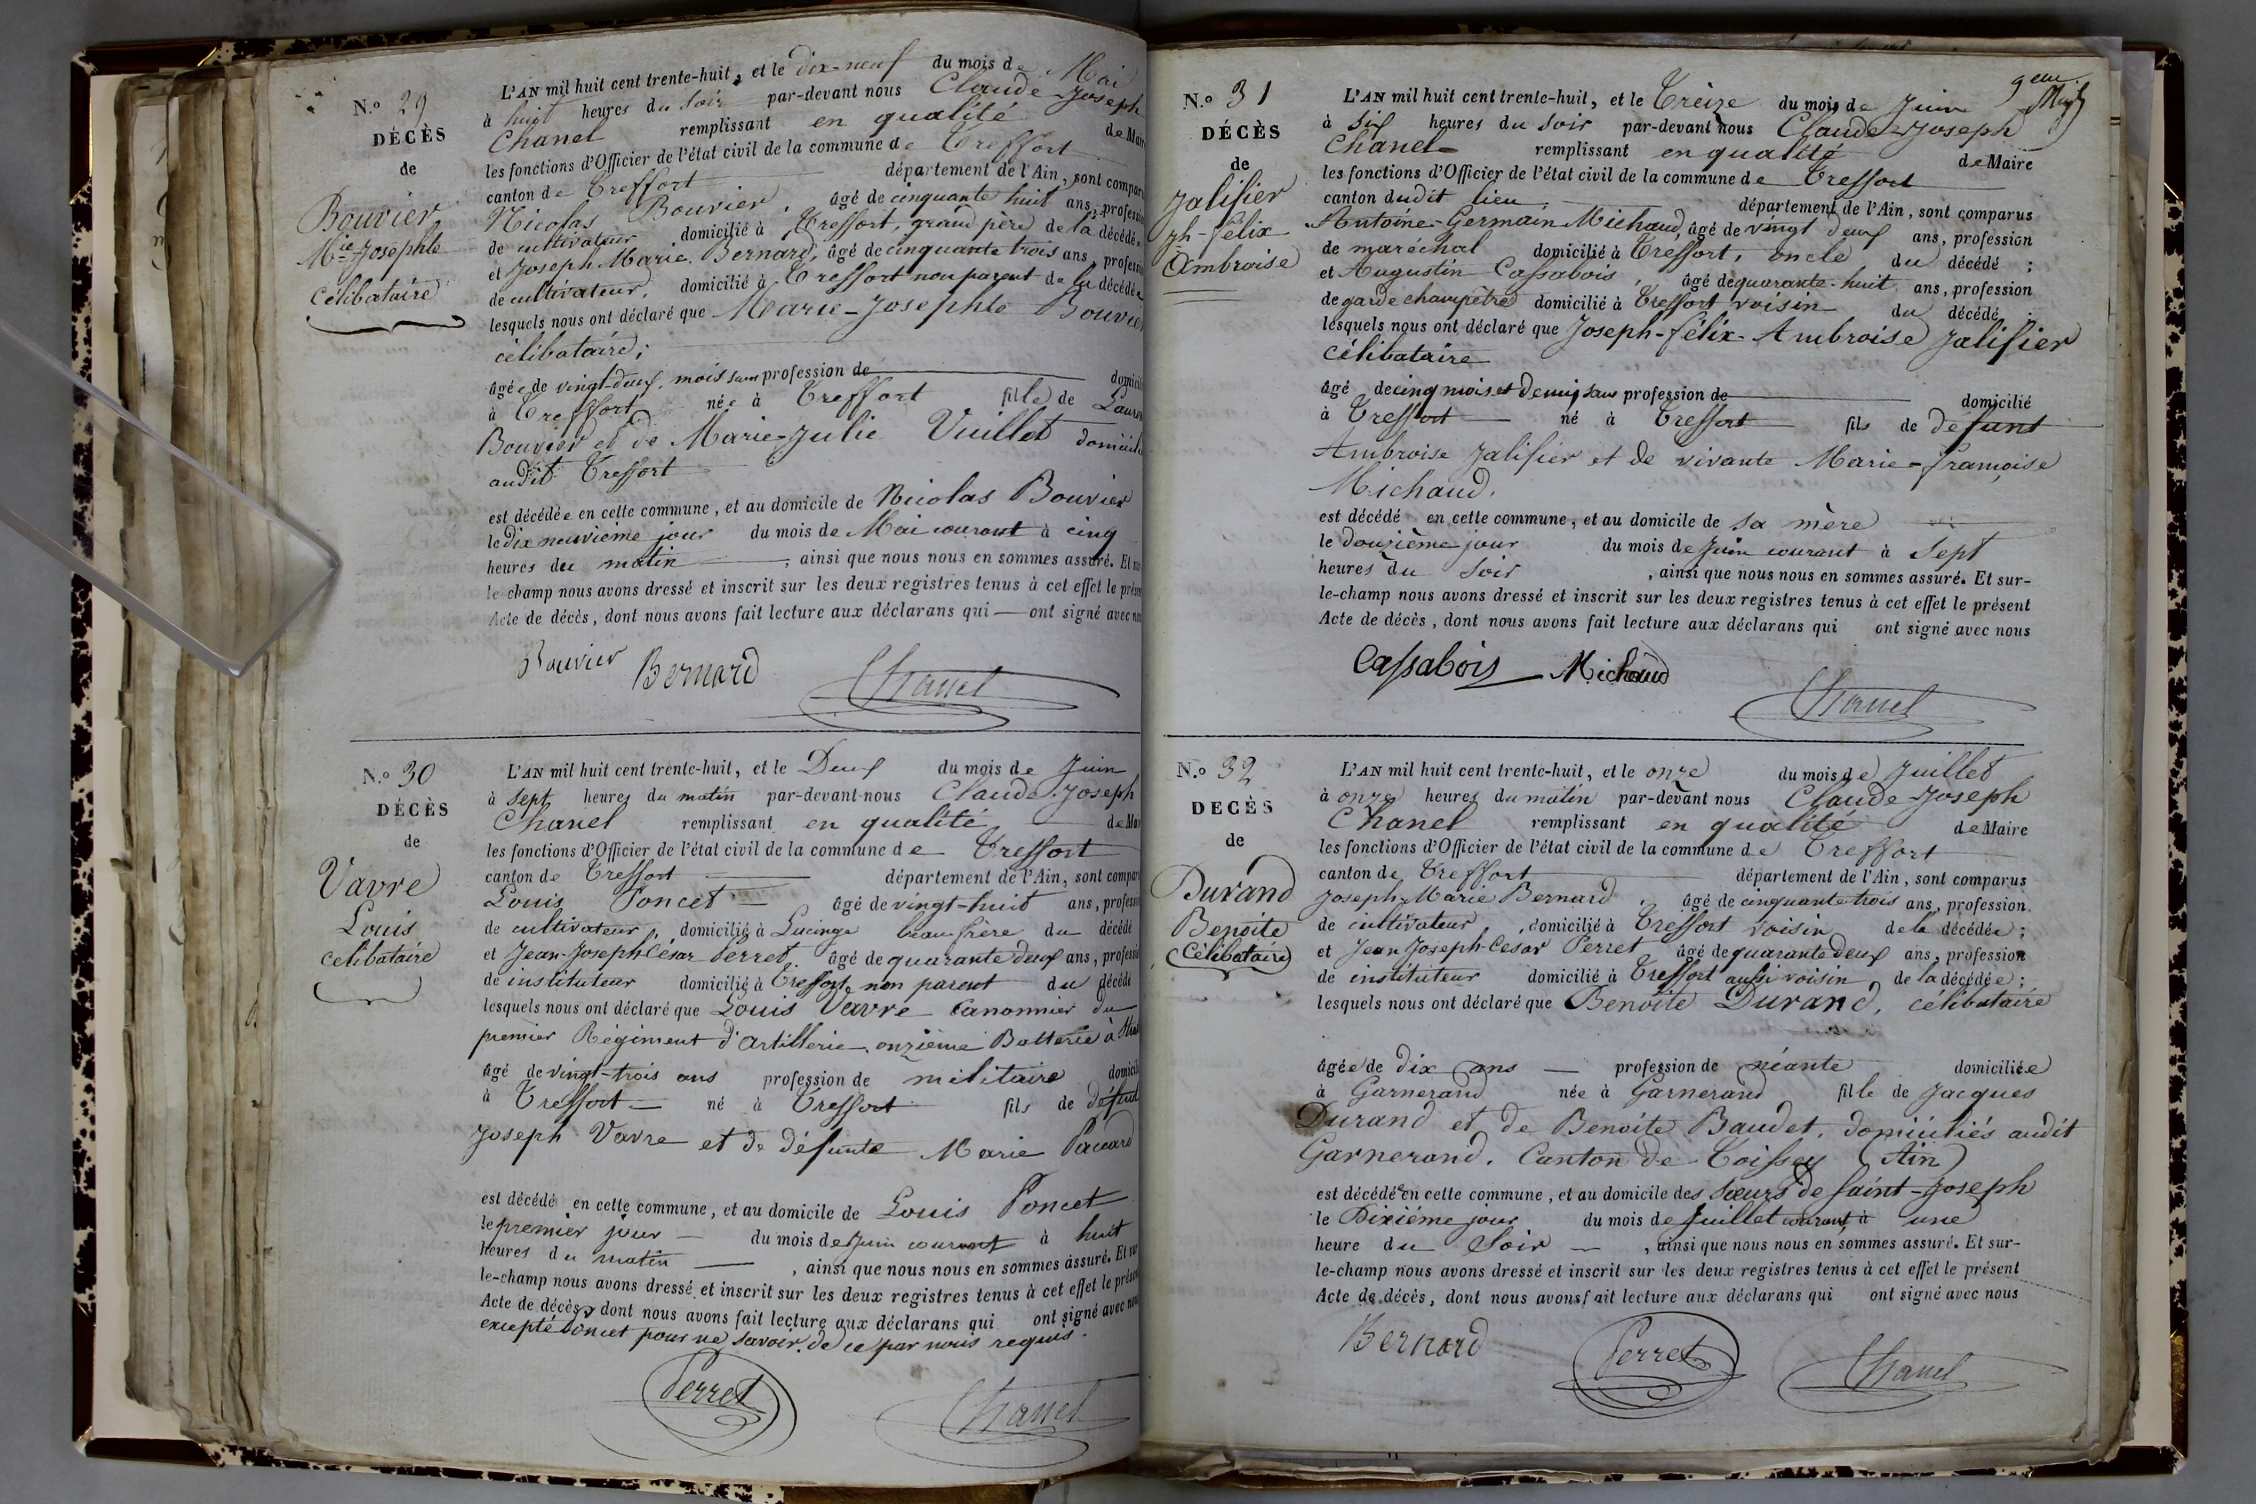 N.o 29
DÉCÈS
de
Bouvier
Mie Josephte
célibataire
L'AN mil huit cent trente-huit, et le dix-neuf du mois de Mai
à huit heures du soir par-devant nous Claude-Joseph
Chanel remplissant en qualité de Mair
les fonctions d'Officier de l'état civil de la commune de Treffort
canton de Treffort département de l'Ain, sont compar
Nicolas Bouvier, âgé de cinquante huit ans, professi
de cultivateur domicilié à Treffort, grand père de la décédée
et Joseph Marie Bernard, âgé de cinquante trois ans, professi
de cultivateur, domicilié à Treffort non parent de la décédée
lesquels nous ont déclaré que Marie-Josephte Bouvier
célibataire;
âgée de vingt-deux mois sans profession de domicili
à Treffort née à Treffort fille de Lauren
Bouvier et de Marie-Julie Vuillet domicili
audit Treffort
est décédée en cette commune, et au domicile de Nicolas Bouvier
le dix neuvième jour du mois de Mai courant à cinq
heures du matin, ainsi que nous nous en sommes assuré. Et sur
le-champ nous avons dressé et inscrit sur les deux registres tenus à cet effet le présen
Acte de décès, dont nous avons fait lecture aux déclarans qui ont signé avec nou
Bouvier Bernard Chanel
N.o 30
DÉCÈS
de
Vavre
Louis
célibataire
L'AN mil huit cent trente-huit, et le Deux du mois de Juin
à sept heures du matin par-devant nous Claude-Joseph
Chanel remplissant en qualité de Mai
les fonctions d'Officier de l'état civil de la commune de Treffort
canton de Treffort département de l'Ain, sont compar
Louis Poncet âgé de vingt-huit ans, professi
de cultivateur, domicilié à Lucinge beau frère du décédé
et Jean-Joseph César Perret âgé de quarante deux ans, professi
de instituteur domicilié à Treffort non parent du décédé
lesquels nous ont déclaré que Louis Vavre Canonnier du
premier Régiment d'artillerie onzième Batterie à
âgé de vingt-trois ans profession de militaire domicili
à Treffort né à Treffort fils de défunt
Joseph Vavre et de défunte Marie Paccard
est décédé en cette commune, et au domicile de Louis Poncet
le premier jour du mois de Juin courant à huit
heures du matin, ainsi que nous nous en sommes assuré. Et sur
le-champ nous avons dressé et inscrit sur les deux registres tenus à cet effet le présen
Acte de décès, dont nous avons fait lecture aux déclarans qui ont signé avec nou
excepté Poncet pour ne savoir de ce par nous requis.
Perret Chanel
N.o 31
DÉCÈS
de
Jalifier
Jh-félix
Ambroise
L'AN mil huit cent trente-huit, et le Treize du mois de Juin
à six heures du soir par-devant nous Claude-Joseph
Chanel remplissant en qualité de Maire
les fonctions d'Officier de l'état civil de la commune de Treffort
canton dudit lieu, département de l'Ain, sont comparus
Antoine-Germain Michaud, âgé de vingt deux ans, profession
de maréchal domicilié à Treffort, oncle du décédé ;
et Augustin Cassabois, âgé de quarante-huit ans, profession
de garde champêtre domicilié à Treffort voisin du décédé ;
lesquels nous ont déclaré que Joseph-félix-Ambroise Jalifier
célibataire
âgé de cinq mois et demi, sans profession de domicilié
à Treffort né à Treffort fils de défunt
Ambroise Jalifier et de vivante Marie-françoise
Michaud.
est décédé en cette commune, et au domicile de sa mère
le douzième jour du mois de Juin courant à sept
heures du soir, ainsi que nous nous en sommes assuré. Et sur-
le-champ nous avons dressé et inscrit sur les deux registres tenus à cet effet le présent
Acte de décès, dont nous avons fait lecture aux déclarans qui ont signé avec nous
Cassabois Michaud
Chanel
N.o 32
DECÈS
de
Durand
Benoite
célibataire
L'AN mil huit cent trente-huit, et le onze du mois de Juillet
à onze heures du matin par-devant nous Claude-Joseph
Chanel remplissant en qualité de Maire
les fonctions d'Officier de l'état civil de la commune de Treffort
canton de Treffort département de l'Ain, sont comparus
Joseph-Marie Bernard, âgé de cinquante trois ans, profession
de cultivateur, domicilié à Treffort voisin de la décédée ;
et Jean Joseph Cesar Perret âgé de quarante deux ans, profession
de instituteur domicilié à Treffort aussi voisin de la décédée ;
lesquels nous ont déclaré que Benoite Durand, célibataire
âgée de dix ans profession de néante domiciliée
à Garnerand née à Garnerand fille de Jacques
Durand et de Benoite Baudet, domiciliés audit
Garnerand, Canton de Toissey (Ain)
est décédée en cette commune, et au domicile des sœurs de Saint-Joseph
le Dixième jour du mois de Juillet courant, à une
heure du Soir, ainsi que nous nous en sommes assuré. Et sur-
le-champ nous avons dressé et inscrit sur les deux registres tenus à cet effet le présent
Acte de décès, dont nous avons fait lecture aux déclarans qui ont signé avec nous
Bernard Perret Chanel